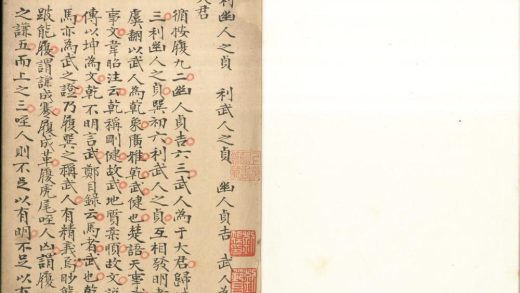 利幽人之貞　利武人之貞　幽人貞吉　武人為
大君
循按履九二幽人貞吉六三武人為于大君歸
三利幽人之貞巽初六利武人之貞互相發明
虞翻以武人為乾象廣雅乾武健也楚語天事
事文韋昭注云乾稱剛健故武地質柔順故文
傳以坤為文乾不明言武鄭目錄云馬者武也乾
馬亦為武之證乃履巽之稱武人有精義焉眇能
跛能履謂謙成蹇履成革履虎尾咥人凶謂履
之謙五而上之三咥人則不足以有明不足以有